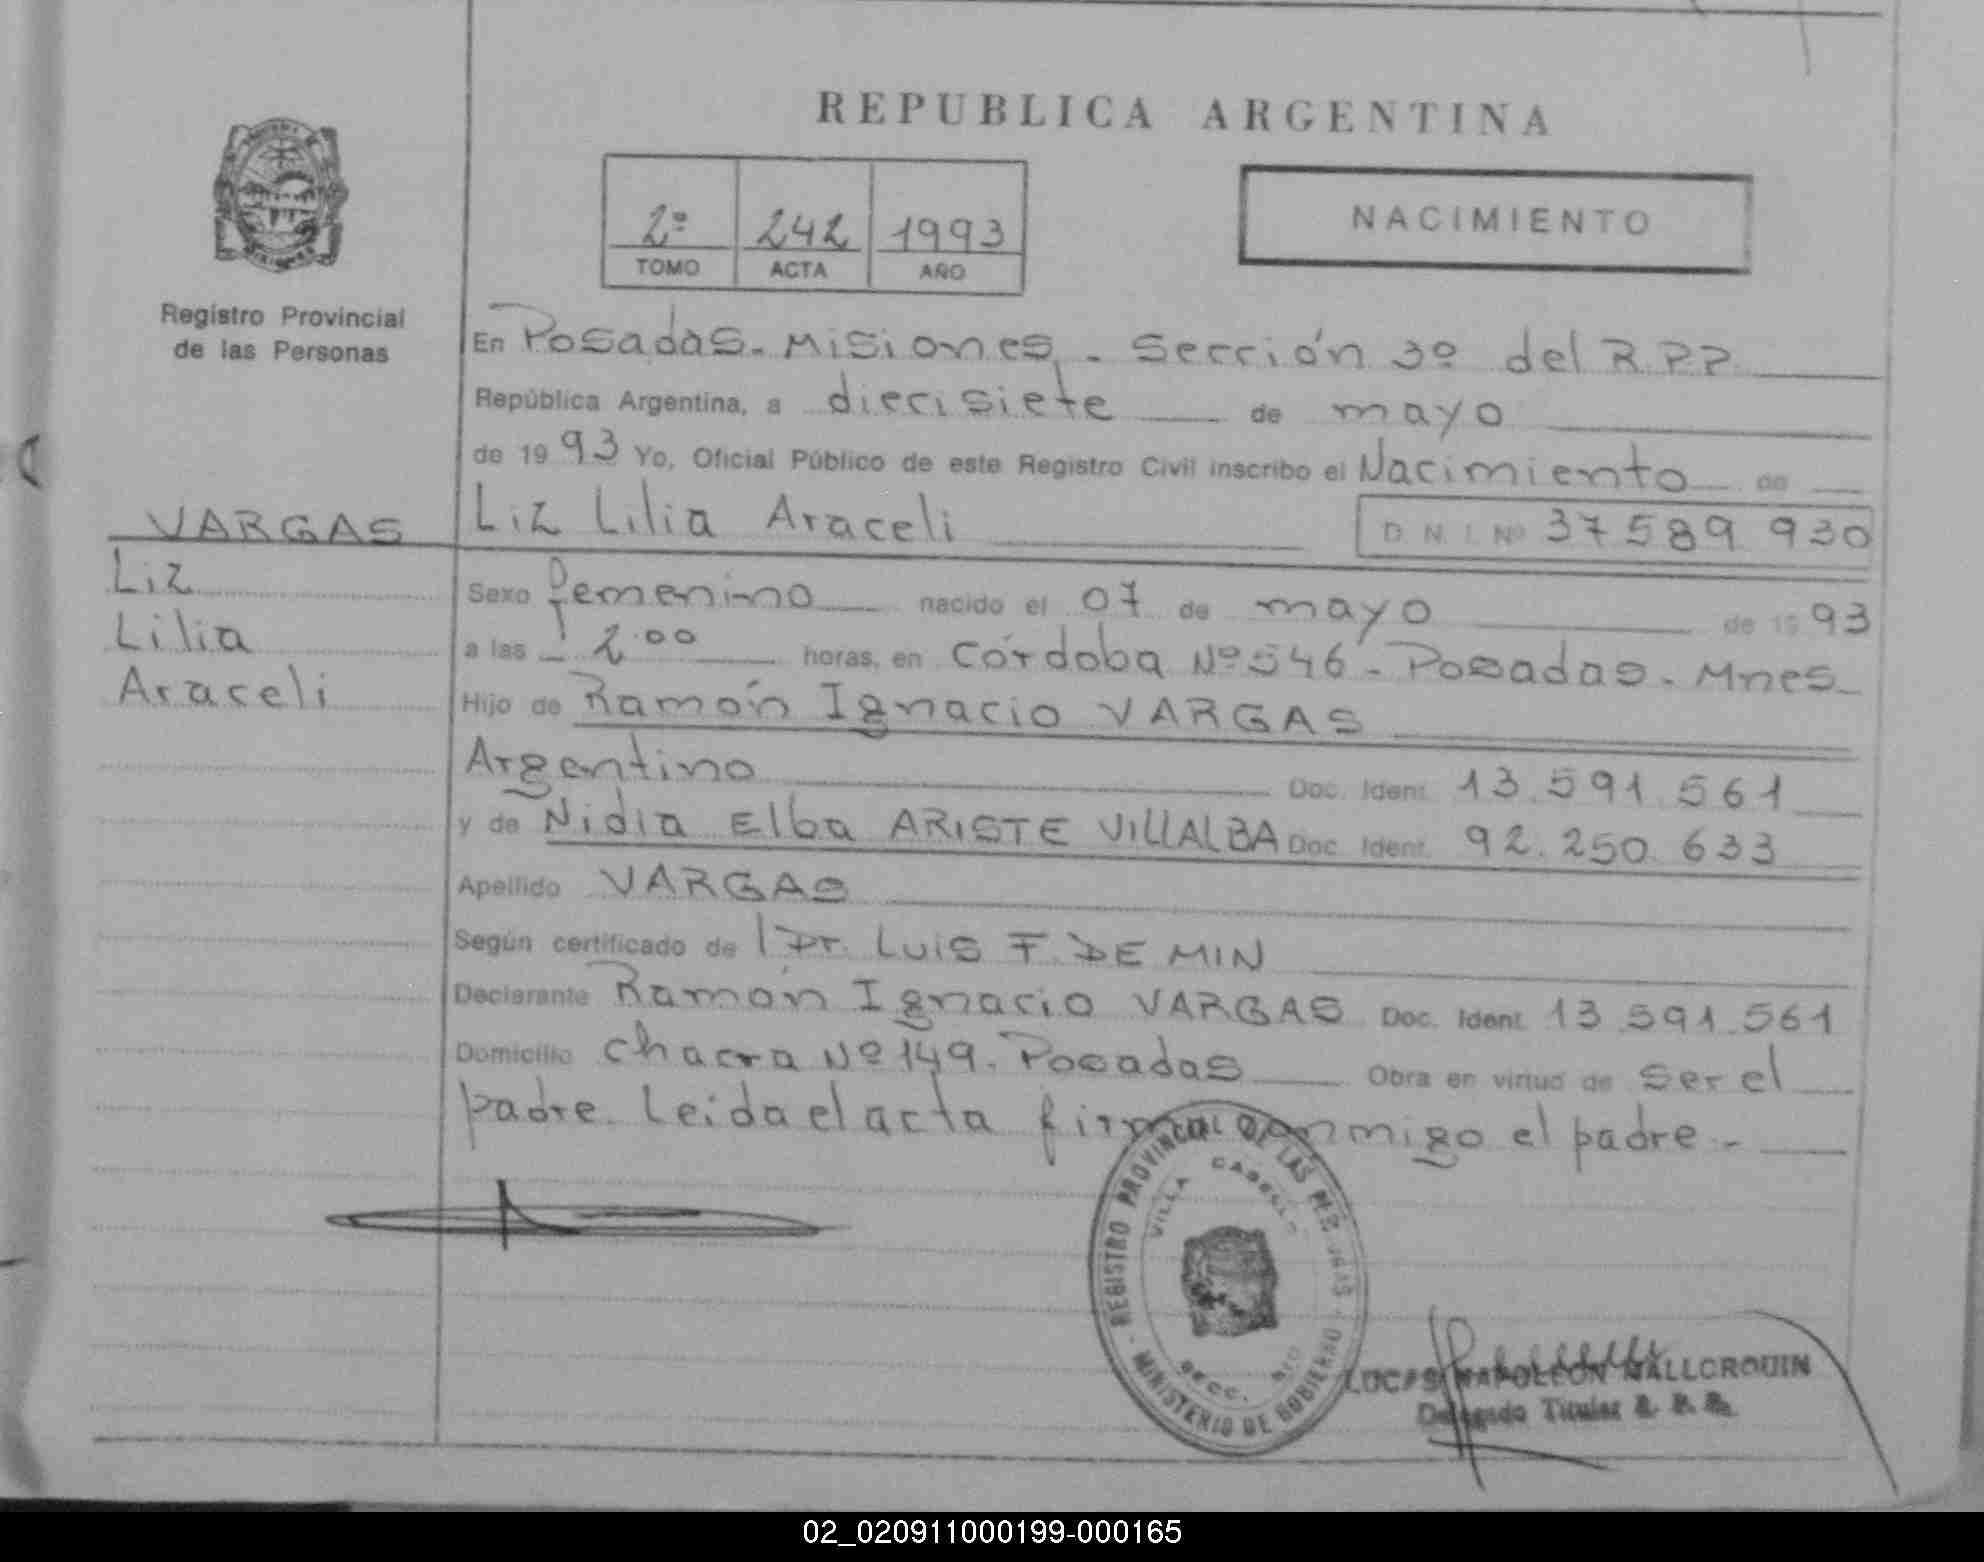 REPUBLICA ARGENTINA
2º 242 1993
TOMO ACTA AÑO
NACIMIENTO
Registro Provincial
de las Personas
En Posadas - Misiones - Sección 3º del R.P.P.
República Argentina, a diecisiete de mayo
de 19 93 Yo, Oficial Público de este Registro Civil inscribo el Nacimiento de
Liz Lilia Araceli D. N. I. Nº 37 589 930
VARGAS
Liz
Lilia
Araceli
Sexo femenino nacido el 07 de mayo de 19 93
a las 2.00 horas, en Córdoba Nº 546 - Posadas - Mnes
Hijo de Ramón Ignacio VARGAS
Argentino Doc. Ident. 13.591.561
y de Nidia Elba ARISTE VILLALBA Doc. Ident. 92.250.633
Apellido VARGAS
Según certificado de l Dr. LUIS F. DE MIN
Declarante Ramón Ignacio VARGAS Doc. Ident. 13.591.561
Domicilio chacra Nº 149. Posadas Obra en virtud de ser el
padre. Leida el acta firma conmigo el padre.-
REGISTRO PROVINCIAL DE LAS PERSONAS
VILLA CABELLO
SECC.
MINISTERIO DE GOBIERNO
LUCAS NAPOLEON MALLORQUIN
Delegado Titular R. P. P.
02_020911000199-000165